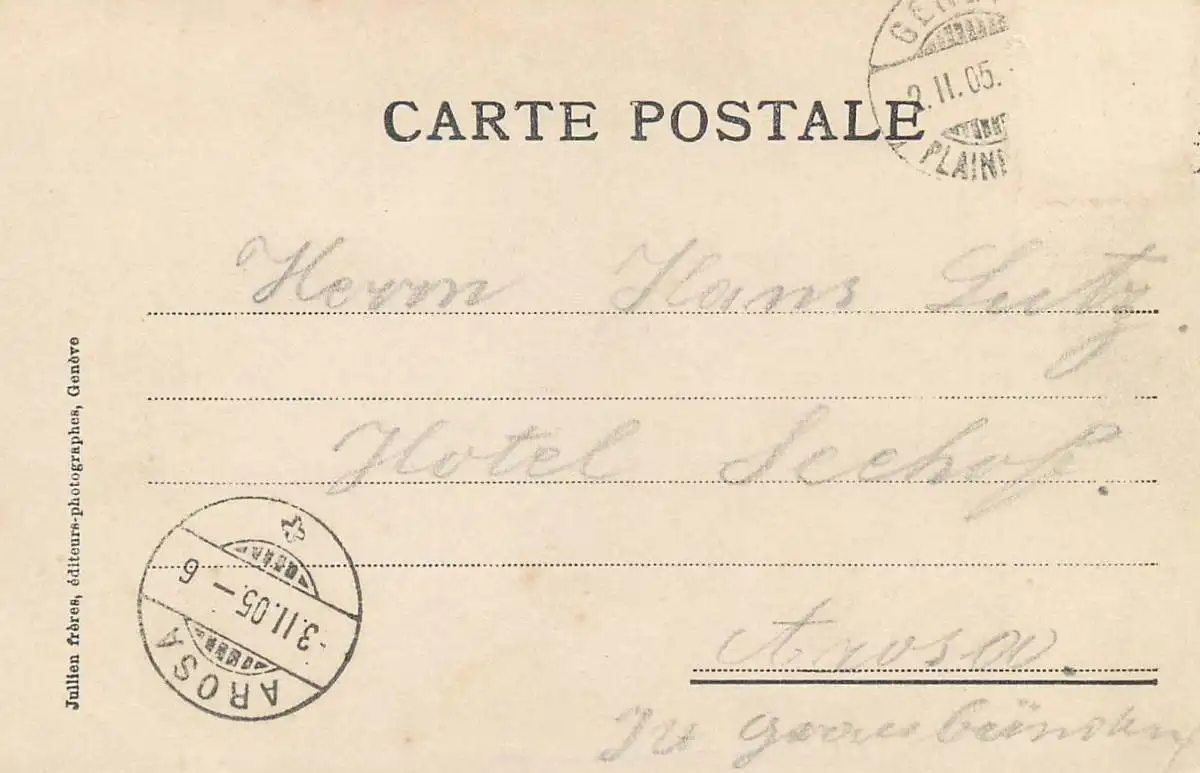 CARTE POSTALE
2.II.05.
Herrn Hans Lutz.
Hotel Seehof.
Arosa.
Jullien frères, éditeurs-photographes, Genève
AROSA
3.II.05.—6